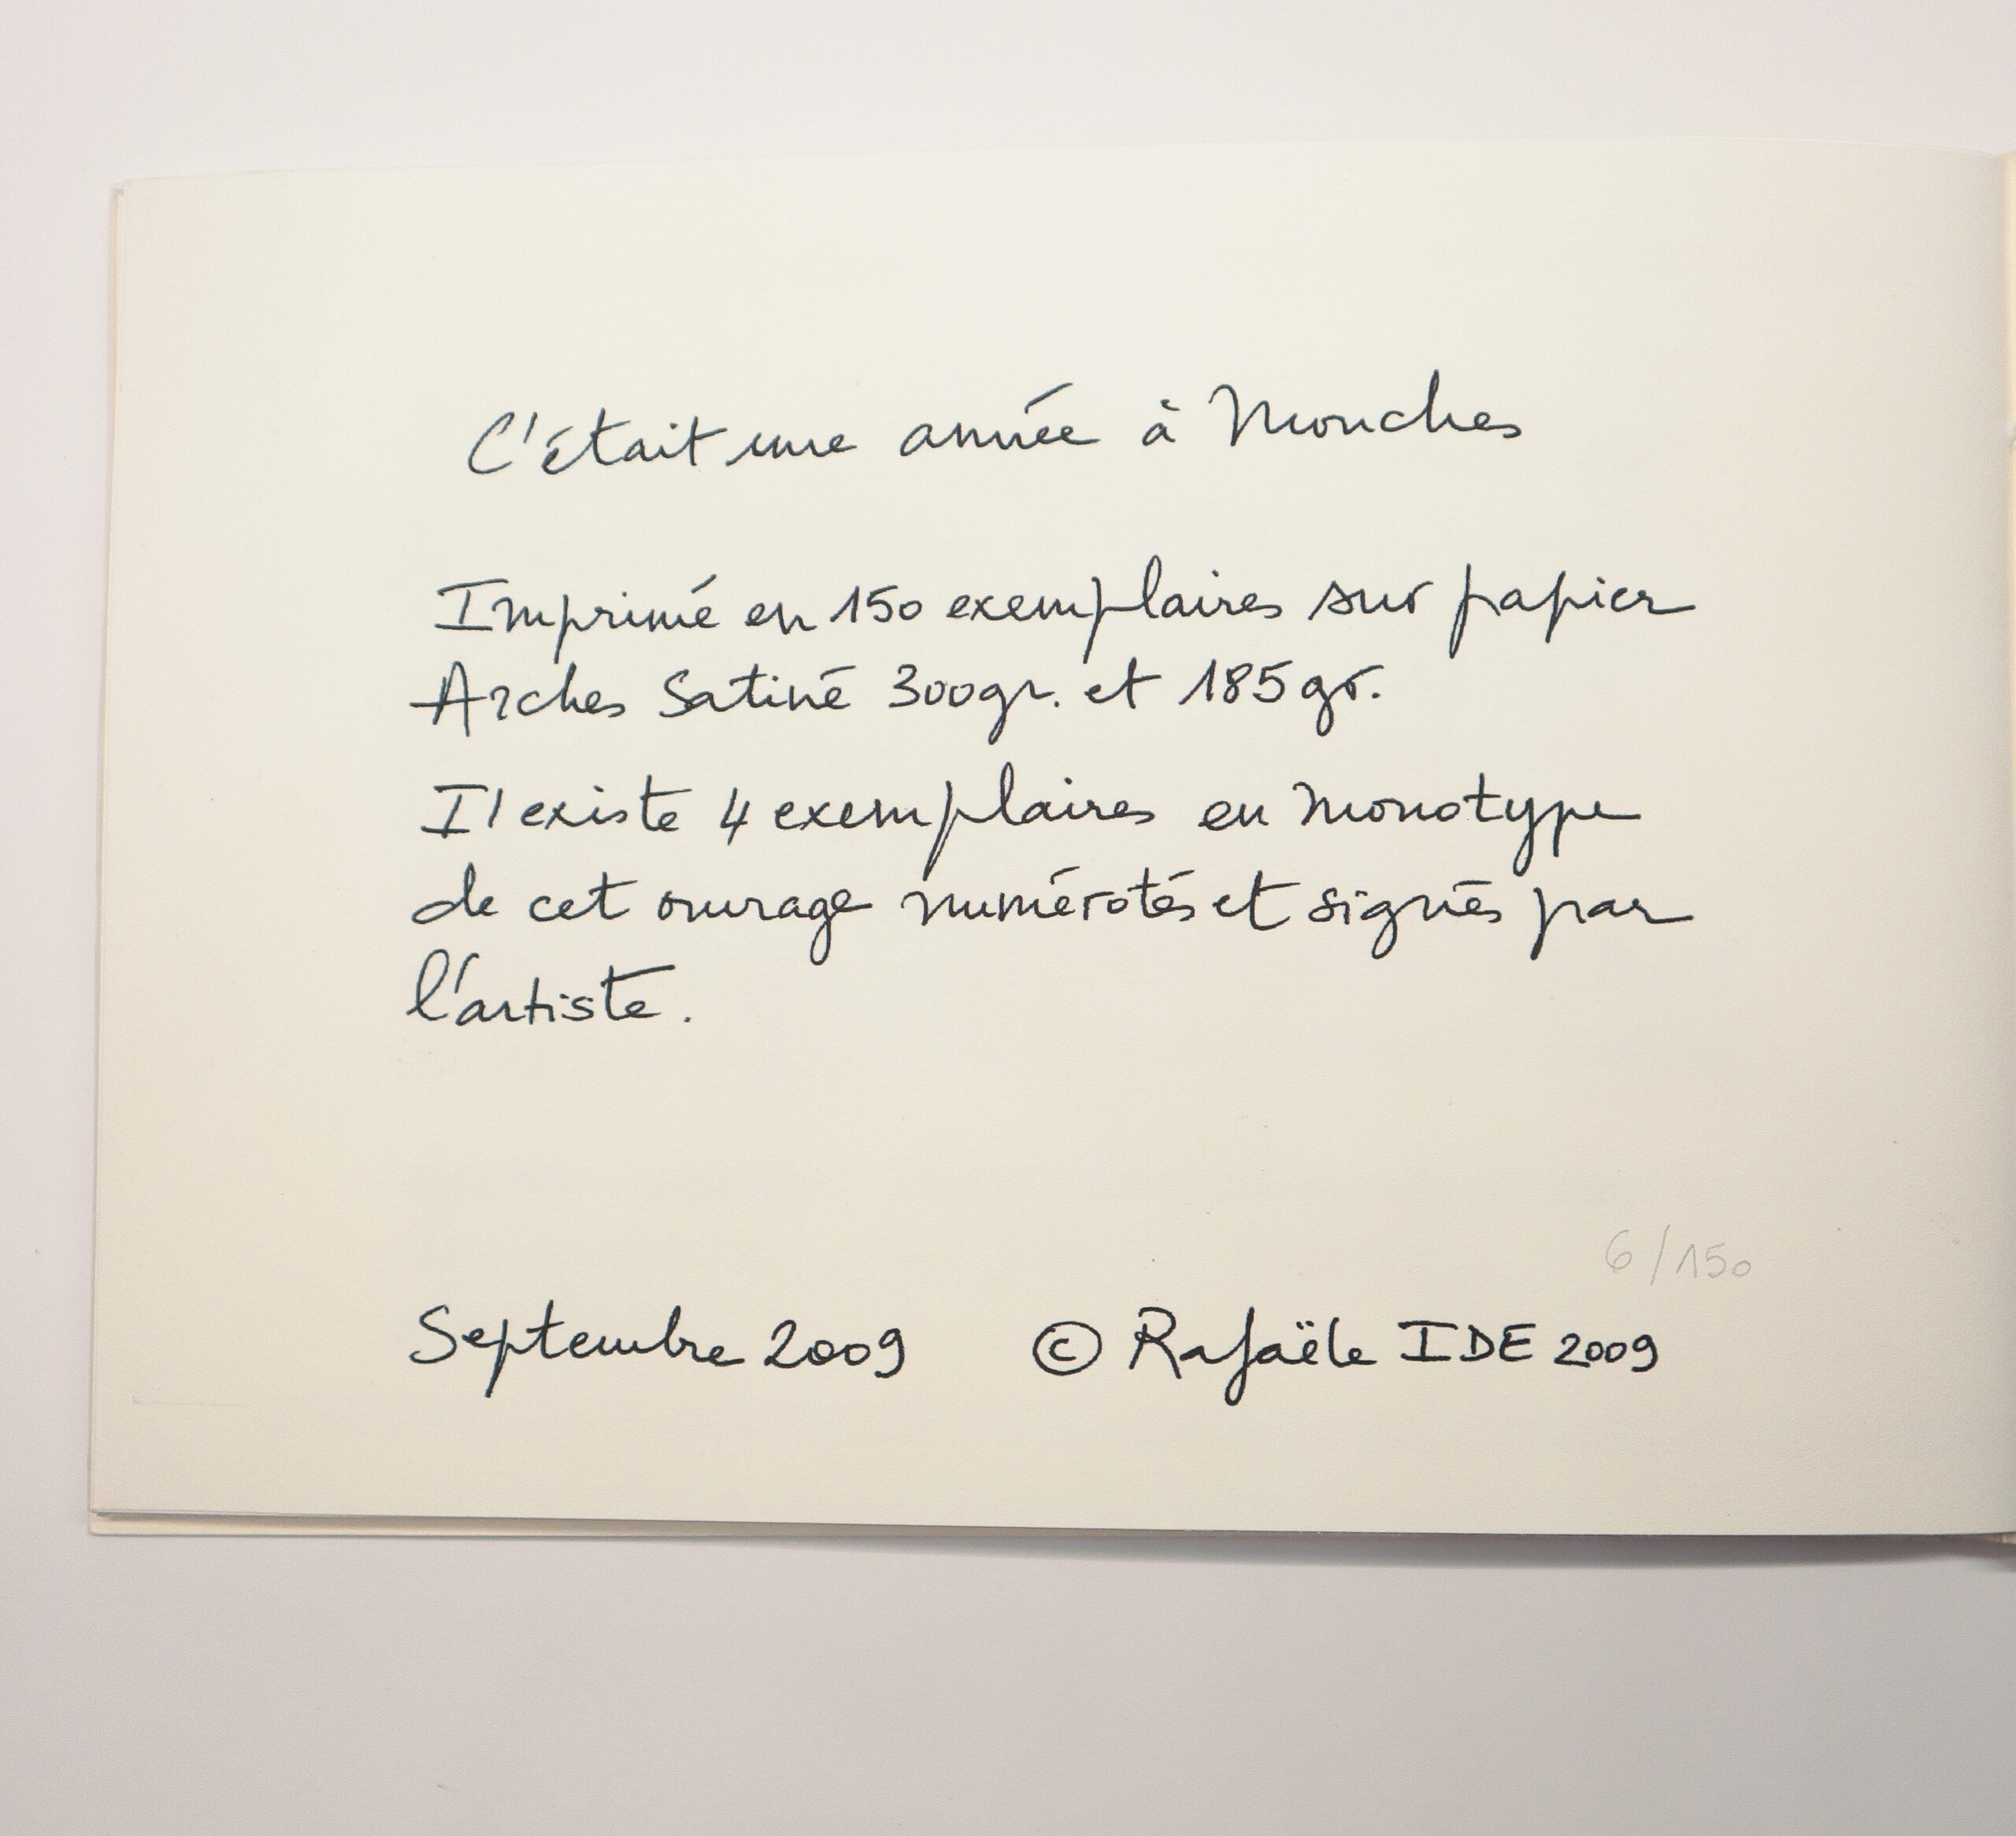 C'était une année à Mouches
Imprimé en 150 exemplaires sur papier
Arches Satiné 300gr. et 185gr.
Il existe 4 exemplaires en monotype
de cet ouvrage numérotés et signés par
l'artiste.
6/150
Septembre 2009 © Rafaële IDE 2009